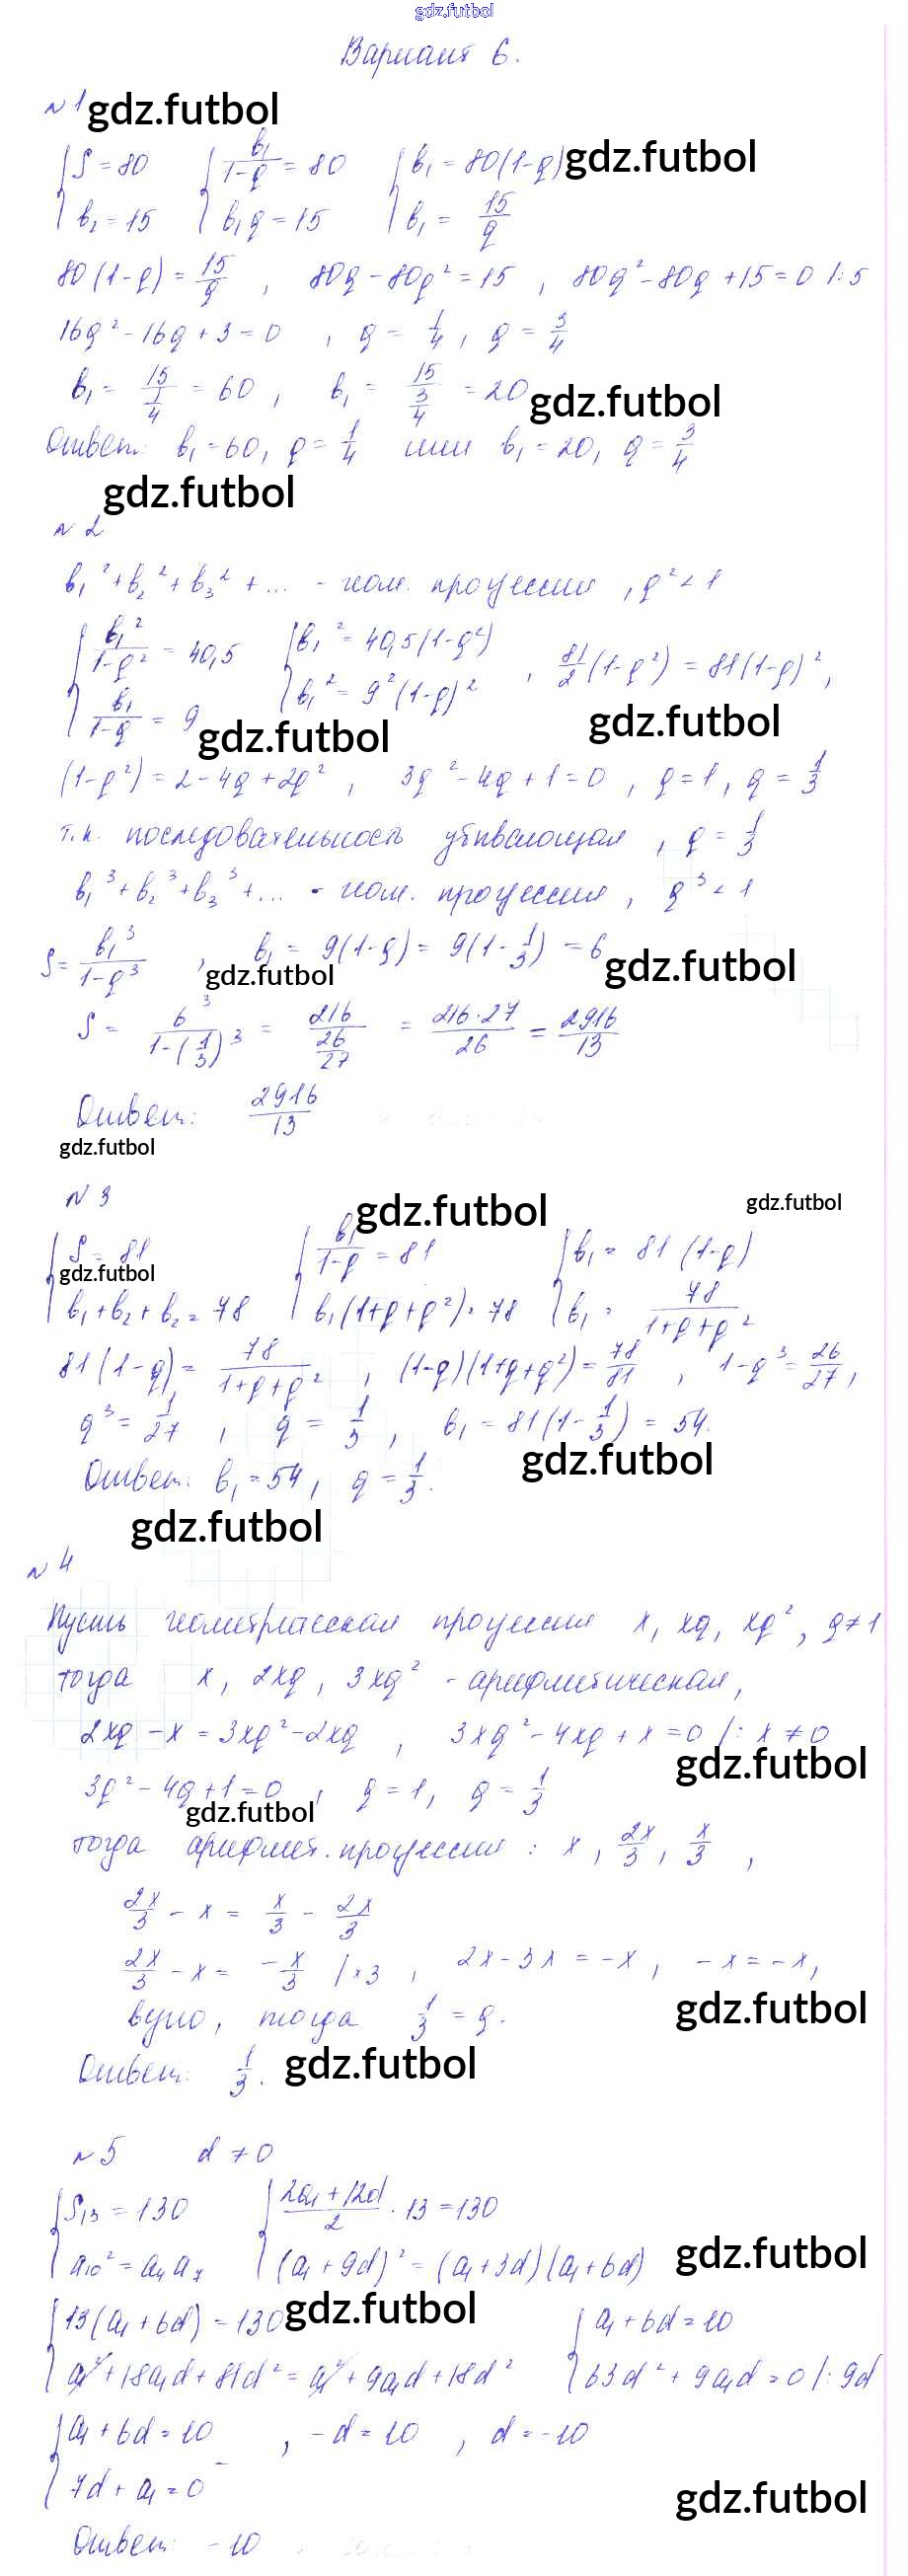 gdz.futbol
Вариант 6.
№1 gdz.futbol
{ S = 80 { b₁/(1-q) = 80 { b₁ = 80(1-q) gdz.futbol
{ b₂ = 15 { b₁q = 15 { b₁ = 15/q
80(1-q) = 15/q , 80q - 80q² = 15 , 80q² - 80q + 15 = 0 |:5
16q² - 16q + 3 = 0 , q = 1/4 , q = 3/4
b₁ = 15/(1/4) = 60 , b₁ = 15/(3/4) = 20 gdz.futbol
Ответ: b₁ = 60, q = 1/4 или b₁ = 20, q = 3/4
gdz.futbol
№2
b₁² + b₂² + b₃² + ... - геом. прогрессия , q² < 1
{ b₁²/(1-q²) = 40,5 { b₁² = 40,5(1-q²) , 81/2(1-q²) = 81(1-q)²,
{ b₁/(1-q) = 9 { b₁² = 9²(1-q)²
gdz.futbol gdz.futbol
(1-q²) = 2 - 4q + 2q² , 3q² - 4q + 1 = 0 , q = 1 , q = 1/3
т.к. последовательность убывающая , q = 1/3
b₁³ + b₂³ + b₃³ + ... - геом. прогрессия , q³ < 1
S = b₁³/(1-q³) , b₁ = 9(1-q) = 9(1-1/3) = 6 gdz.futbol
gdz.futbol
S = 6³/(1-(1/3)³) = 216/(26/27) = 216·27/26 = 2916/13
Ответ: 2916/13
gdz.futbol
№3 gdz.futbol gdz.futbol
{ S = 81 { b₁/(1-q) = 81 { b₁ = 81(1-q)
gdz.futbol
{ b₁ + b₂ + b₂ = 78 { b₁(1+q+q²) = 78 { b₁ = 78/(1+q+q²)
81(1-q) = 78/(1+q+q²) , (1-q)(1+q+q²) = 78/81 , 1-q³ = 26/27,
q³ = 1/27 , q = 1/3 , b₁ = 81(1-1/3) = 54.
Ответ: b₁ = 54, q = 1/3. gdz.futbol
gdz.futbol
№4
Пусть геометрическая прогрессия x, xq, xq², q≠1
тогда x, 2xq, 3xq² - арифметическая,
2xq - x = 3xq² - 2xq , 3xq² - 4xq + x = 0 |: x ≠ 0
gdz.futbol
3q² - 4q + 1 = 0 , q = 1, q = 1/3
gdz.futbol
тогда арифмет. прогрессия : x, 2x/3, x/3 ,
2x/3 - x = x/3 - 2x/3
2x/3 - x = -x/3 |×3 , 2x - 3x = -x , -x = -x,
gdz.futbol
тогда 1/3 = q.
Ответ: 1/3. gdz.futbol
№5 d ≠ 0
{ S₁₃ = 130 { (2a₁+12d)/2 · 13 = 130
{ a₁₀² = a₄a₇ { (a₁+9d)² = (a₁+3d)(a₁+6d) gdz.futbol
{ 13(a₁+6d) = 130 gdz.futbol { a₁+6d = 10
{ a₁² + 18a₁d + 81d² = a₁² + 9a₁d + 18d² { 63d² + 9a₁d = 0 |: 9d
{ a₁ + 6d = 10 , -d = 10 , d = -10
{ 7d + a₁ = 0 gdz.futbol
Ответ: -10